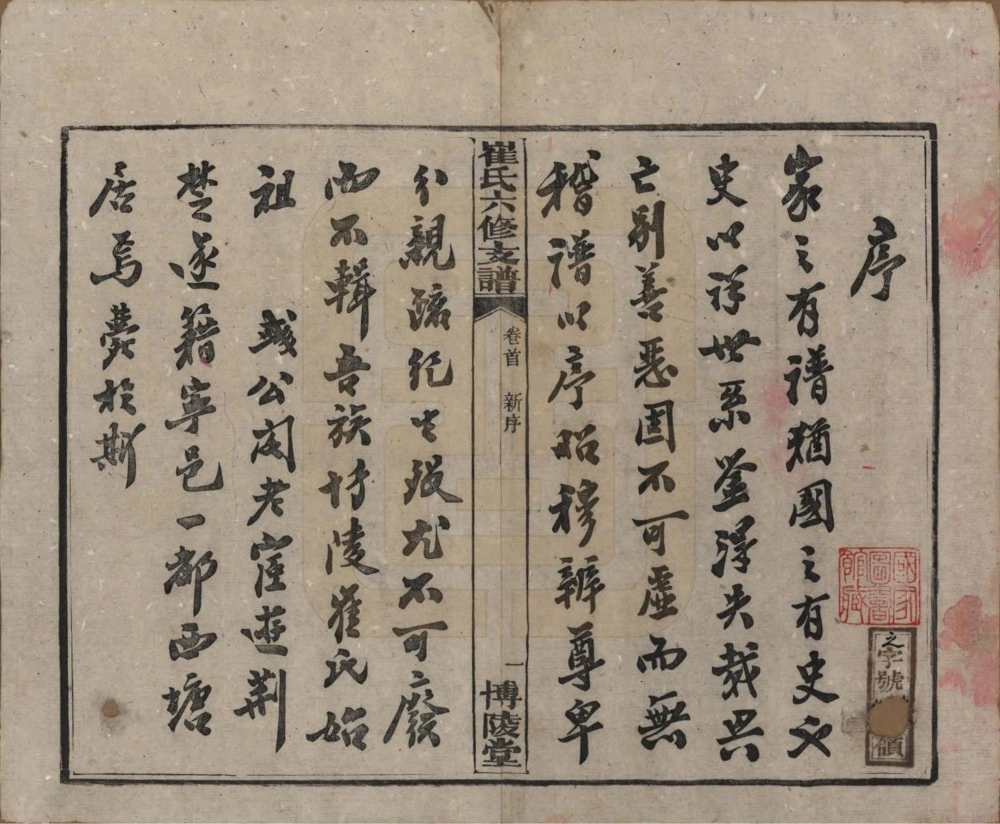 序
家之有譜猶國之有史也
史以詳世系鉴得失裁興
亡別善惡固不可虛而無
稽譜以序昭穆辨尊卑
分親疏紀生歿尤不可廢
而不輯吾族博陵崔氏始
祖 彧公閣老宦遊荊
楚遂籍寧邑一都西塘
居焉葬於斯
崔氏六修支譜
卷首 新序
一
博陵堂
國家圖書館藏
之字號 領